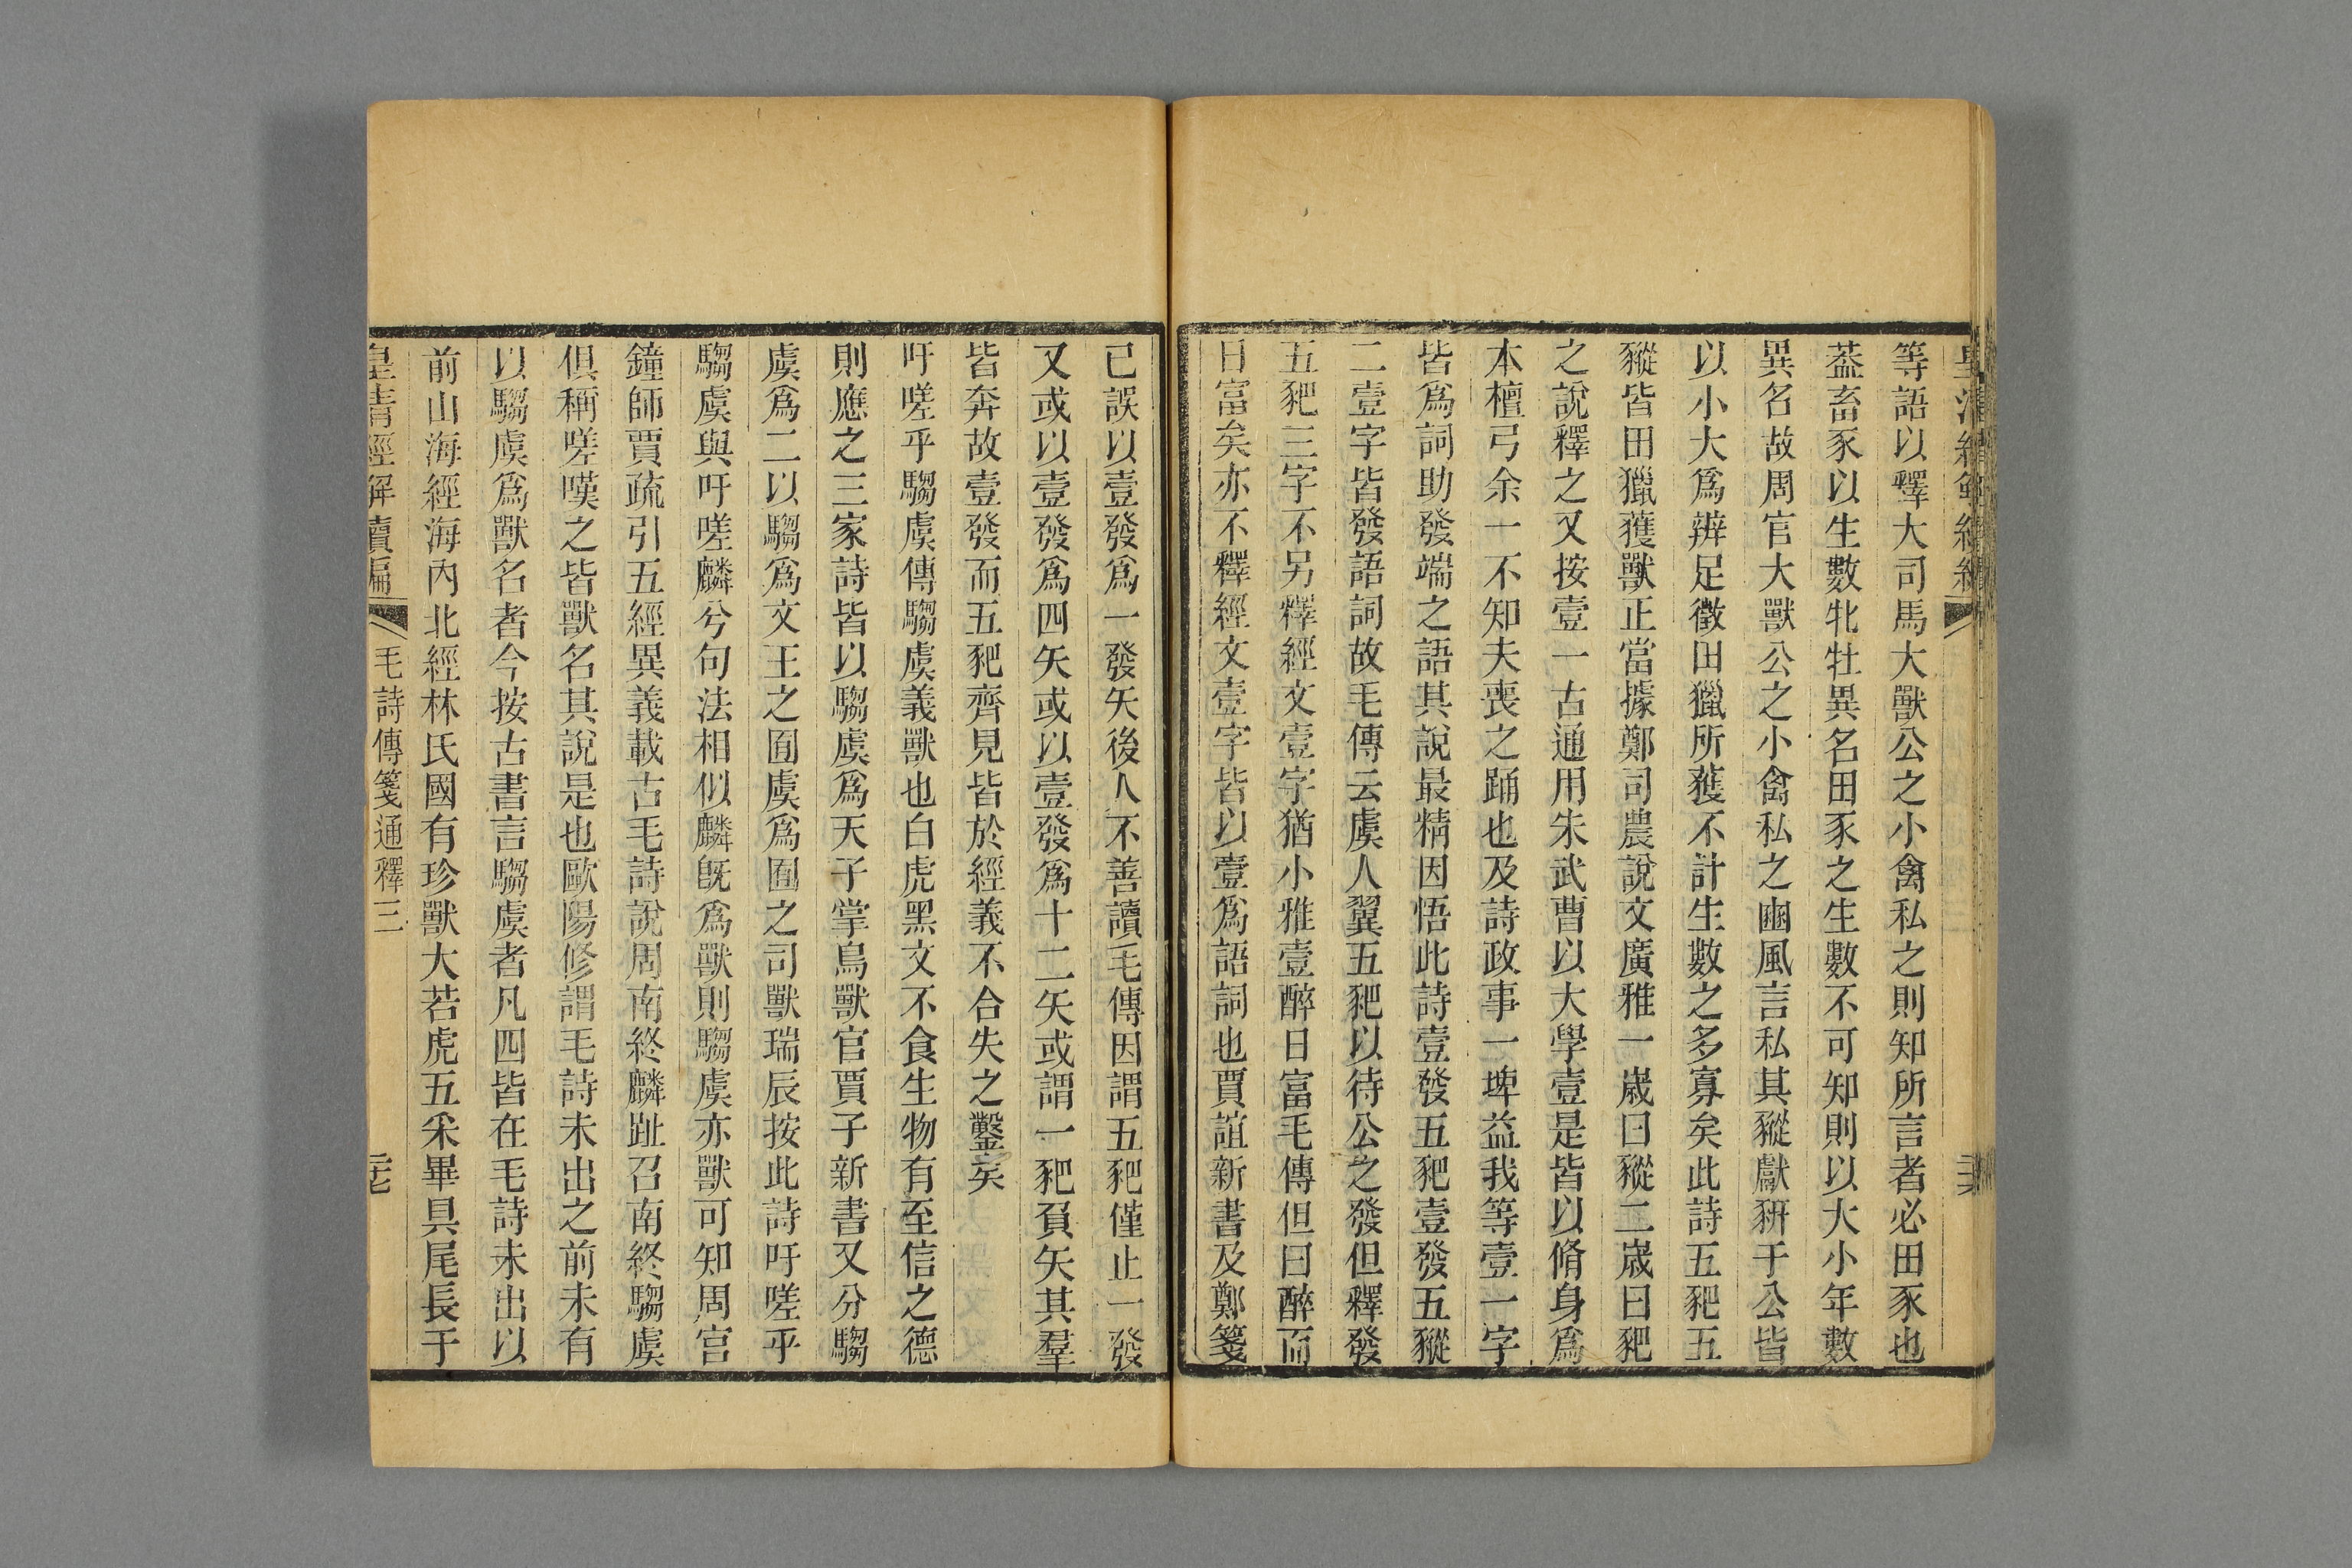 等語以釋大司馬大獸公之小禽私之則知所言者必田豕也
葢畜豕以生數牝牡異名田豕之生數不可知則以大小年數
異名故周官大獸公之小禽私之豳風言私其豵獻豜于公皆
以小大爲辨足徵田獵所獲不計生數之多寡矣此詩五豝五
豵皆田獵獲獸正當據鄭司農說文廣雅一歲曰豵二歲曰豝
之說釋之又按壹一古通用朱武曹以大學壹是皆以脩身爲
本檀弓余一不知夫喪之踊也及詩政事一埤益我等壹一字
皆爲詞助發端之語其說最精因悟此詩壹發五豝壹發五豵
二壹字皆發語詞故毛傳云虞人翼五豝以待公之發但釋發
五豝三字不另釋經文壹字猶小雅壹醉日富毛傳但曰醉而
日富矣亦不釋經文壹字皆以壹爲語詞也賈誼新書及鄭箋
已誤以壹發爲一發矢後人不善讀毛傳因謂五豝僅止一發
又或以壹發爲四矢或以壹發爲十二矢或謂一豝負矢其羣
皆奔故壹發而五豝齊見皆於經義不合失之鑿矣
吁嗟乎騶虞傳騶虞義獸也白虎黑文不食生物有至信之德
則應之三家詩皆以騶虞爲天子掌鳥獸官賈子新書又分騶
虞爲二以騶爲文王之囿虞爲囿之司獸瑞辰按此詩吁嗟乎
騶虞與吁嗟麟兮句法相似麟旣爲獸則騶虞亦獸可知周官
鐘師賈疏引五經異義載古毛詩說周南終麟趾召南終騶虞
俱稱嗟嘆之皆獸名其說是也歐陽修謂毛詩未出之前未有
以騶虞爲獸名者今按古書言騶虞者凡四皆在毛詩未出以
前山海經海內北經林氏國有珍獸大若虎五采畢具尾長于
皇清經解續編 毛詩傳箋通釋三